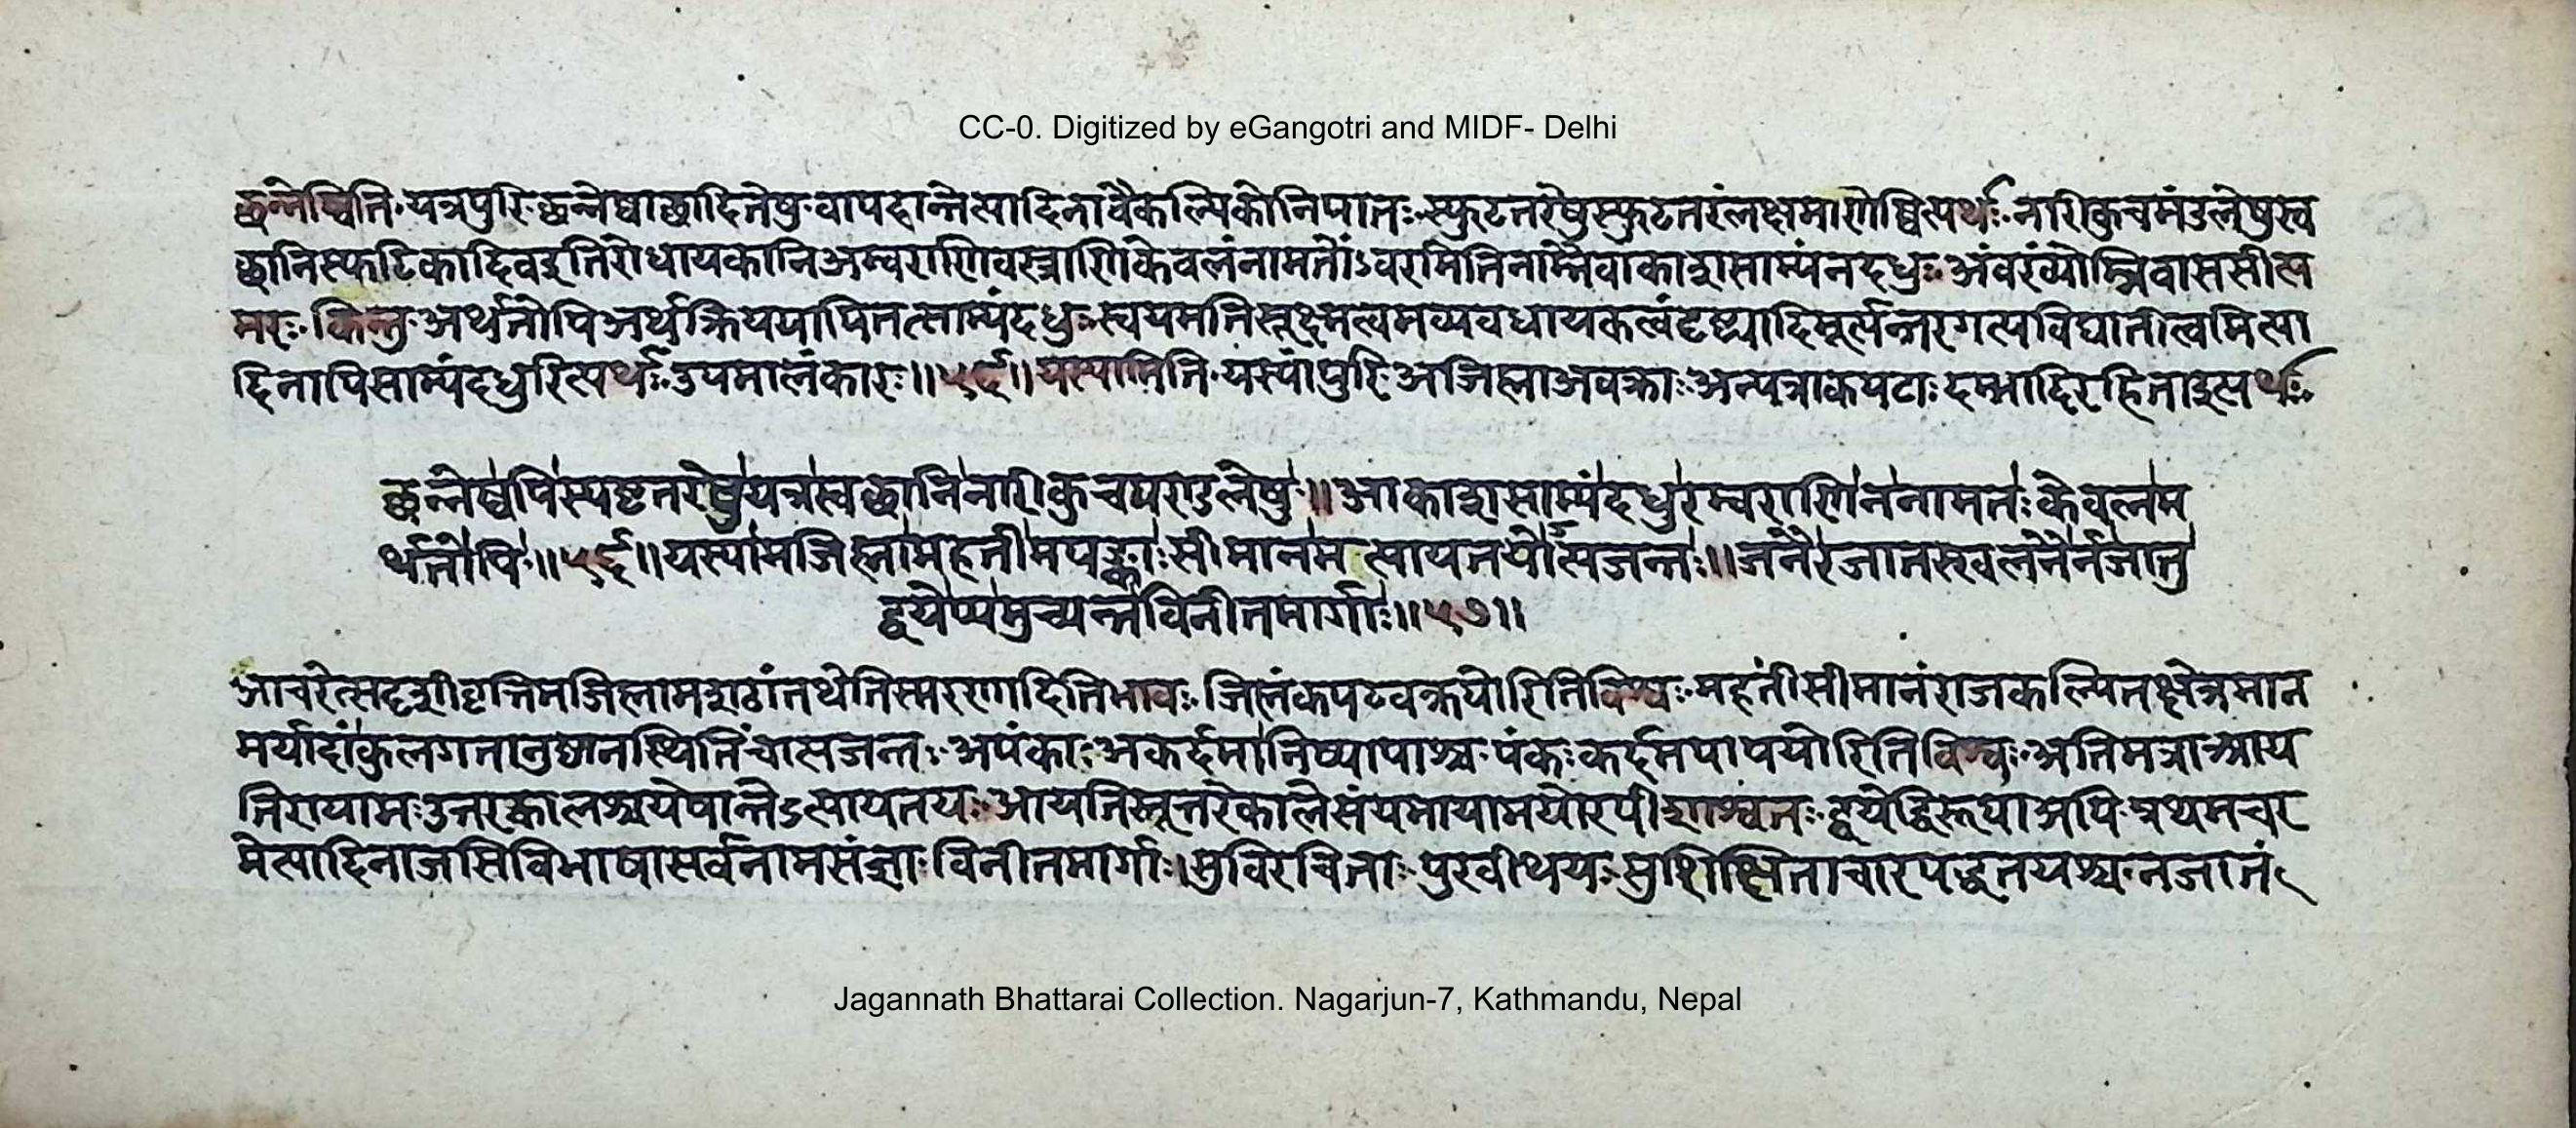 CC-0. Digitized by eGangotri and MIDF- Delhi
छन्नेष्विति यत्रपुरिछन्नेष्वाछादितेषु वापदान्तेत्यादिनावैकल्पिकोनिपातः स्फुटतरेषुस्फुटतरंलक्षमाणेष्वित्यर्थः नारीकुचमंडलेषुस्व
छानिस्फटिकादिवदतिरोधायकानिअम्बराणिवस्त्राणिकेवलंनामतोंऽवरमितिनाम्नैवाकाशसाम्यंनदधुः अंवरंव्योम्निवाससीत्य
मरः किन्तु अर्थतोपिअर्थक्रिययापितत्साम्यंदधुः स्वयमतिसूक्ष्मत्वमव्यवधायकत्वंदृष्ट्यादिमूर्त्यन्तरगत्यविघातीत्वमित्या
दिनापिसाम्यंदधुरित्यर्थः उपमालंकारः॥५६॥यस्यामिति यस्यांपुरि अजिह्माअवक्राः अन्यत्राकपटाः दम्भादिरहिताइत्यर्थः
छन्नेष्वपिस्पष्टतरेषुयत्रस्वछानिनारीकुचमण्डलेषु॥आकाशसाम्यंदधुरम्वराणिननामतःकेवलम
र्थतोपि॥५६॥यस्यामजिह्मामहतीमपङ्काःसीमानमत्यायतयोत्यजन्तः॥जनैरजातस्खलनैर्नजातु
द्वयेप्यमुच्यन्तविनीतमार्गाः॥५७॥
आचरेत्सदृशीवृत्तिमजिह्मामशठांतथेतिस्मरणादितिभावः जिह्मंकपटवक्रयोरितिविश्वः महतींसीमानंराजकल्पितक्षेत्रमान
मर्यादांकुलगतानुष्ठानस्थितिंचात्यजन्तः अपंकाः अकर्दमानिष्पापाश्च पंकः कर्दमपापयोरितिविश्वः अतिमत्राआय
तिरायामःउत्तरकालश्चयेषान्तेऽत्यायतयः आयतिस्तूत्तरेकालेसंयमायामयोरपीशाश्वतः द्वयेद्विरूपाअपि प्रथमचर
मेत्यादिनाजसिविभाषासर्वनामसंज्ञाः विनीतमार्गाः।सुविरचिताः पुरवीथयः सुशिक्षिताचारपद्धतयश्च नजातं
Jagannath Bhattarai Collection. Nagarjun-7, Kathmandu, Nepal